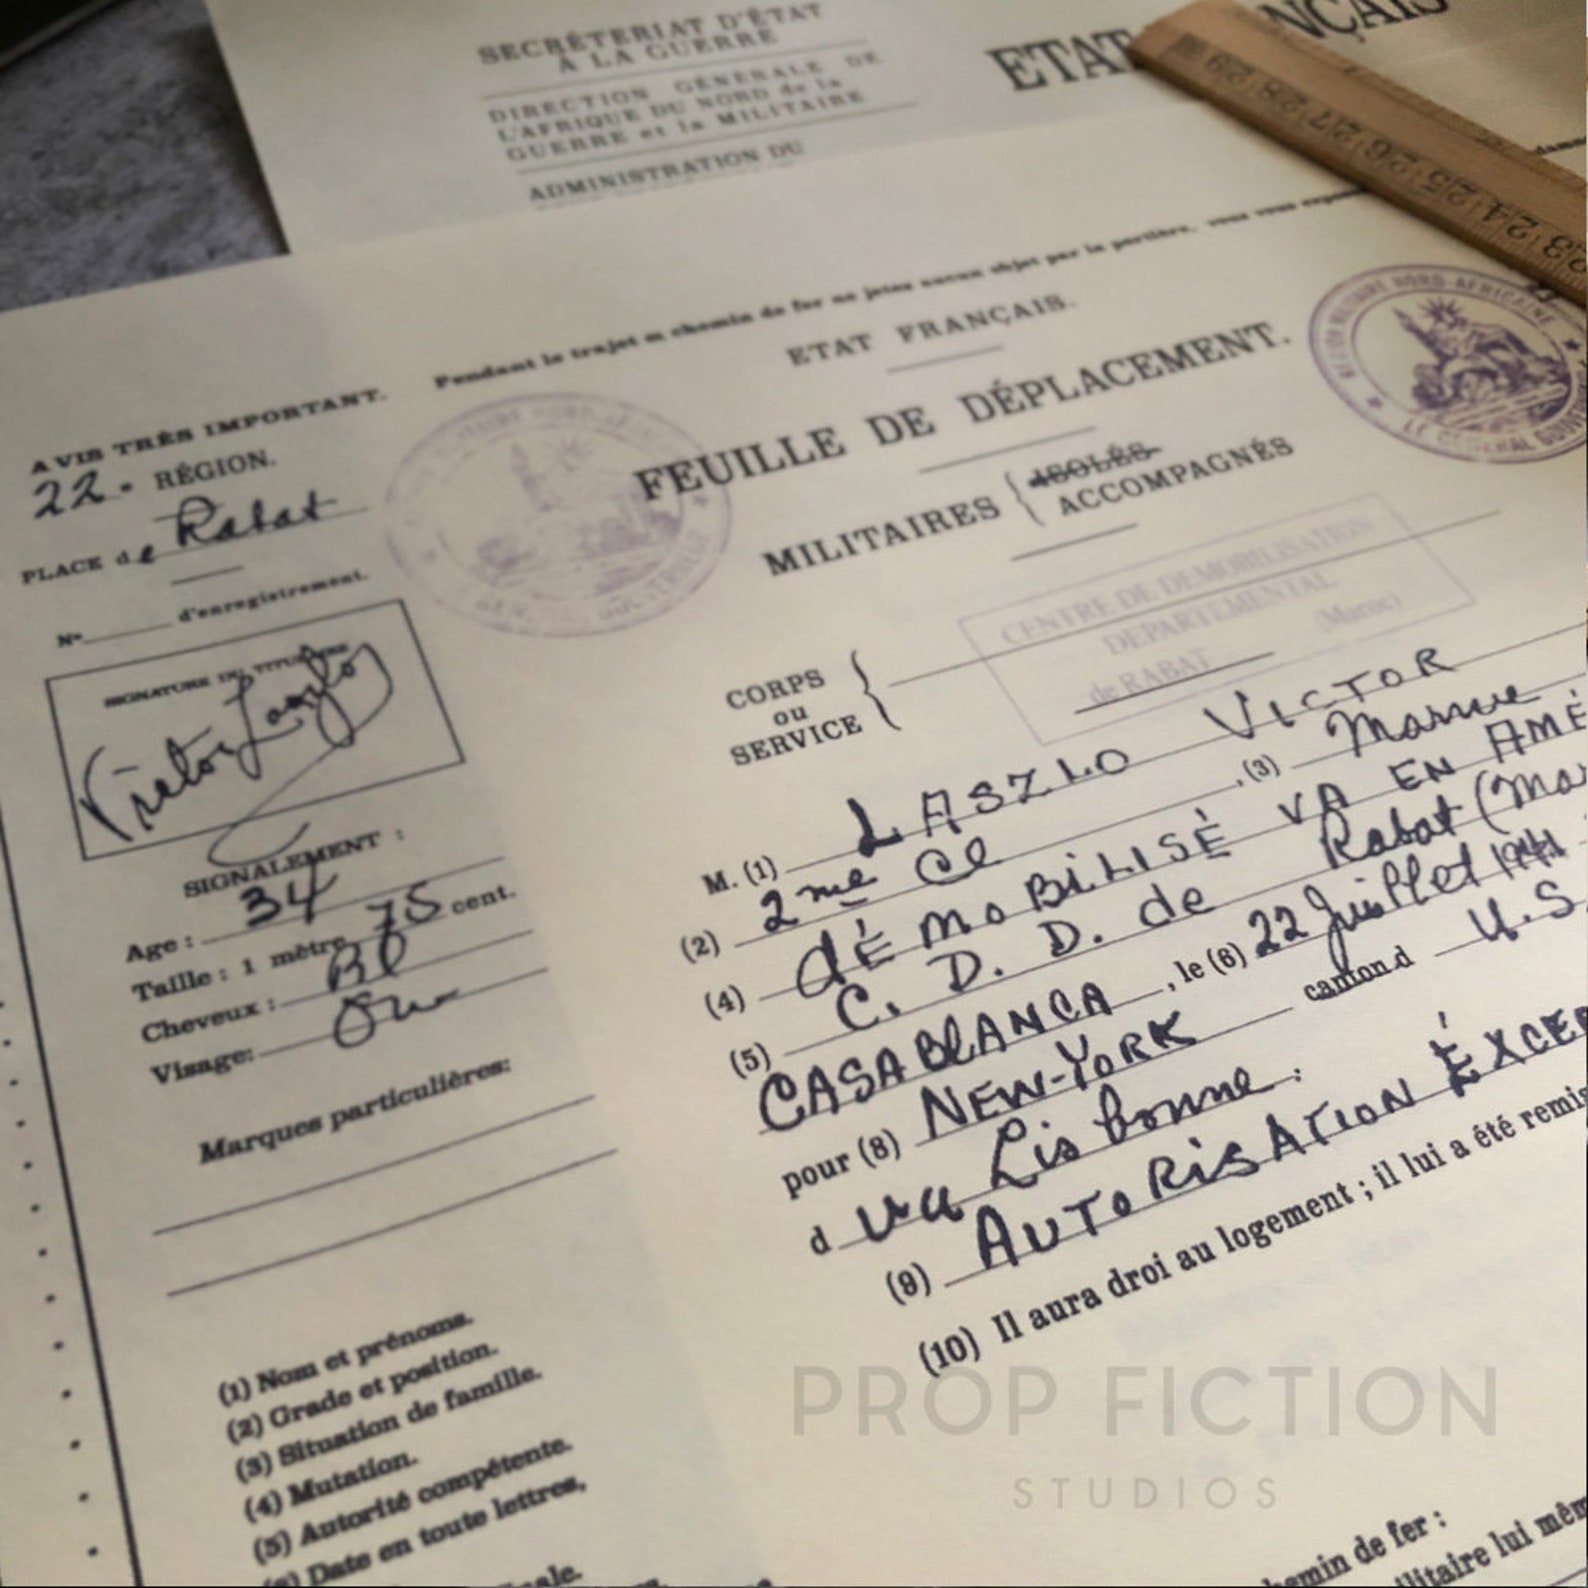 SECRÉTERIAT D'ÉTAT
À LA GUERRE
DIRECTION GÉNÉRALE DE
L'AFRIQUE DU NORD de la
GUERRE et la MILITAIRE
ADMINISTRATION DU
ETAT NÇAIS
Pendant le trajet m chemin de fer ne jetez aucun objet par la portière, vous vous
ETAT FRANÇAIS.
FEUILLE DE DÉPLACEMENT.
MILITAIRES { ISOLÉS
ACCOMPAGNÉS
AVIS TRÈS IMPORTANT.
22 - RÉGION.
PLACE de Rabat
No d'enregistrement.
SIGNATURE DU TITULAIRE
Victor Laszlo
SIGNALEMENT :
Age : 34
Taille : 1 mètre 75 cent.
Cheveux : Bl
Visage:
Marques particulières:
(1) Nom et prénoms.
(2) Grade et position.
(3) Situation de famille.
(4) Mutation.
(5) Autorité compétente.
Date en toute lettres,
CENTRE DE DEMOBILISATION
DEPARTEMENTAL
de RABAT (Maroc)
CORPS
ou
SERVICE
M. (1) LASZLO VICTOR
(2) 2me Cl , (3)
(4) dÉMOBiLISÉ VA EN AMÉ
(5) C. D. D. de Rabat (Ma
CASABLANCA , le (6) 22 Juillet 1941
pour (8) NEW-YORK canton d U.S.
d via Lisbonne.
(9) AUTORISATION ÉXCEP
(10) Il aura droi au logement ; il lui a été remis
PROP FICTION
STUDIOS
hemin de fer :
ilitaire lui mêm
23 24 25 26 27 28 29